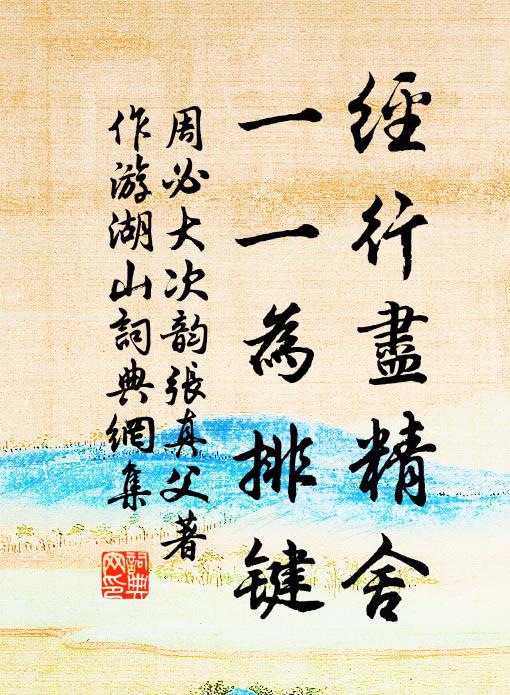 經行盡精舍
一一為排鍵
周必大次韵張真父著
作游湖山詞典網集
詞典